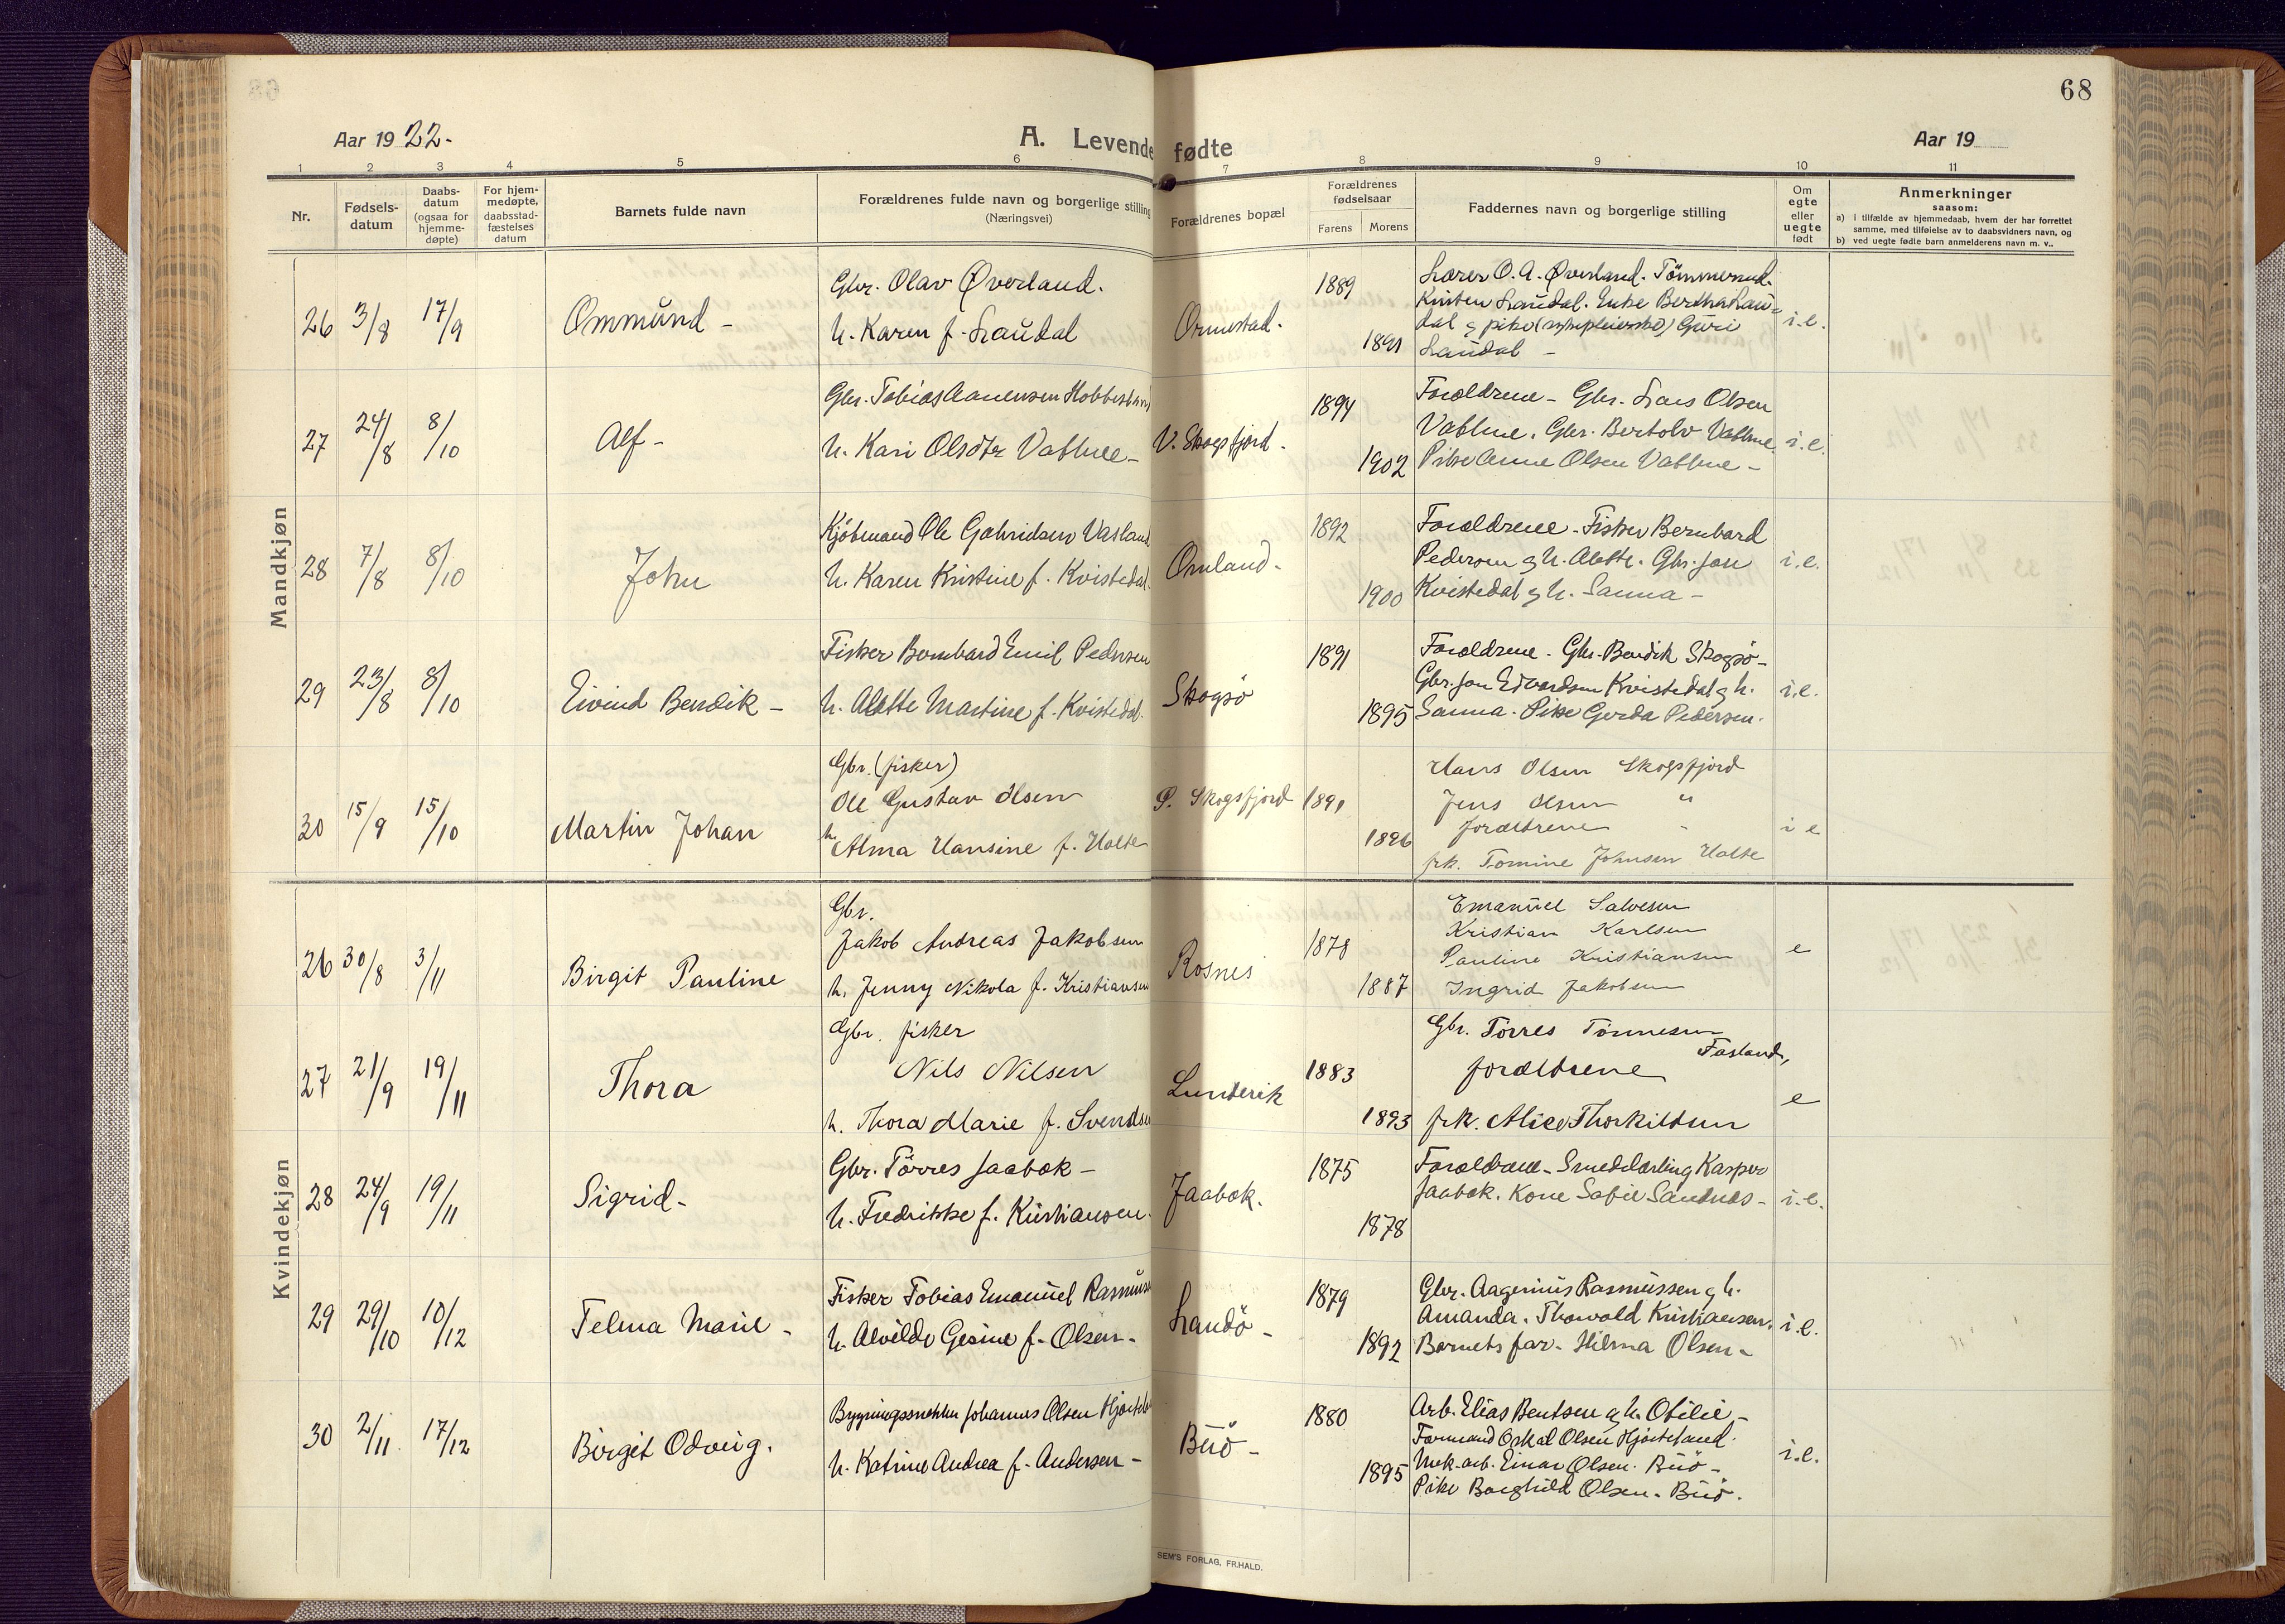 68
Aar 1922.
A. Levende fødte
Aar 19
1 2 3 4 5 6 7 8 9 10 11
Nr.
Fødsels-
datum
Daabs-
datum
(ogsaa for
hjemme-
døpte)
For hjem-
medøpte,
daabsstad-
fæstelses
datum
Barnets fulde navn
Forældrenes fulde navn og borgerlige stilling
(Næringsvei)
Forældrenes bopæl
Forældrenes
fødselsaar
Farens Morens
Faddernes navn og borgerlige stilling
Om
egte
eller
uegte
født
Anmerkninger
saasom:
a) i tilfælde av hjemmedaab, hvem der har forrettet
samme, med tilføielse av to daabsvidners navn, og
b) ved uegte fødte barn anmelderens navn m. v..
Mandkjøn
26 3/8 17/9 Ommund -
Gbr. Olav Øverland.
h. Karen f. Laudal
Ormestad.
1889
1891
Lærer O. A. Øverland.
Kristen Laudal. Enke Bertha Lau-
dal g pike (sykepleierske) Guri
Laudal -
i.e.
27 24/8 8/10 Alf -
Gbr. Tobias Aanensen
h. Kari Olsdtr Vatlne -
V. Skogsfjord.
1894
1902
Forældrene - Gbr. Lars Olsen
Vatlne. Gbr. Bertolv Vatlne.
Pike Anne Olsen Vatlne -
i.e.
28 7/8 8/10 John
Kjöbmand Ole Vasland
h. Karen Kristine f. Kvistedal.
Omland.
1892
1900
Forældrene - Fisker Bernhard
Pedersen g h. Alette. Gbr. Jon
Kvistedal g h. Sanna -
i.e.
29 23/8 8/10 Eivind Bendik -
Fisker Bernhard Emil Pedersen
h. Alette Martine f. Kvistedal.
Skogsö
1891
1895
Forældrene. Gbr. Bendik Skogsö -
Gbr. Jon Edvardsen Kvistedal g h.
Sanna. Pike Gerda Pedersen.
i.e.
30 15/9 15/10 Martin Johan
Gbr. (fisker)
Ole Gustav Olsen
h. Alma Hansine f. Holte
P. Skogsfjord
1891
1896
Hans Olsen Skogsfjord
Jens Olsen "
forældrene "
frk. Tomine Johnsen Holte
i e
Kvindekjøn
26 30/8 3/11 Birgit Pauline
Gbr.
Jakob Andreas Jakobsen
h. Jenny Nikola f. Kristiansen
Rosnes
1878
1887
Emanuel Salvesen
Kristian Karlsen
Pauline Kristiansen
Ingrid Jakobsen
e
27 21/9 19/11 Thora
Gbr. fisker
Nils Nilsen
h. Thora Marie f. Svendsen
Lundevik
1883
1893
Gbr. Torres Tönnesen
Fasland,
forældrene
frk. Alice Thorkildsen
e
28 24/9 19/11 Sigrid -
Gbr. Törres Jaabæk -
h. Fredrikke f. Kristiansen.
Jaabæk.
1875
1878
Forældrene - Smedelærling Kasper
Jaabæk. Kone Sofie Sandnes -
i.e.
29 29/10 10/12 Telma Marie -
Fisker Tobias Emanuel Rasmussen
h. Alvilde Gesine f. Olsen -
Landö -
1879
1892
Gbr. Aagenius Rasmussen g h.
Amanda. Thorvald Kristiansen.
Barnets far. Hilma Olsen -
i.e.
30 2/11 17/12 Birgit Odveig.
Bygningssnekker Johannes Olsen
h. Katrine Andrea f. Andersen -
Buö -
1880
1895
Arb. Elias Bentsen g h. Otilie -
Formand Oskal Olsen Hjorteland.
Mek. arb. Einar Olsen. Buö -
Pike Borghild Olsen. Buö.
i.e.
SEM'S FORLAG, FR.HALD.